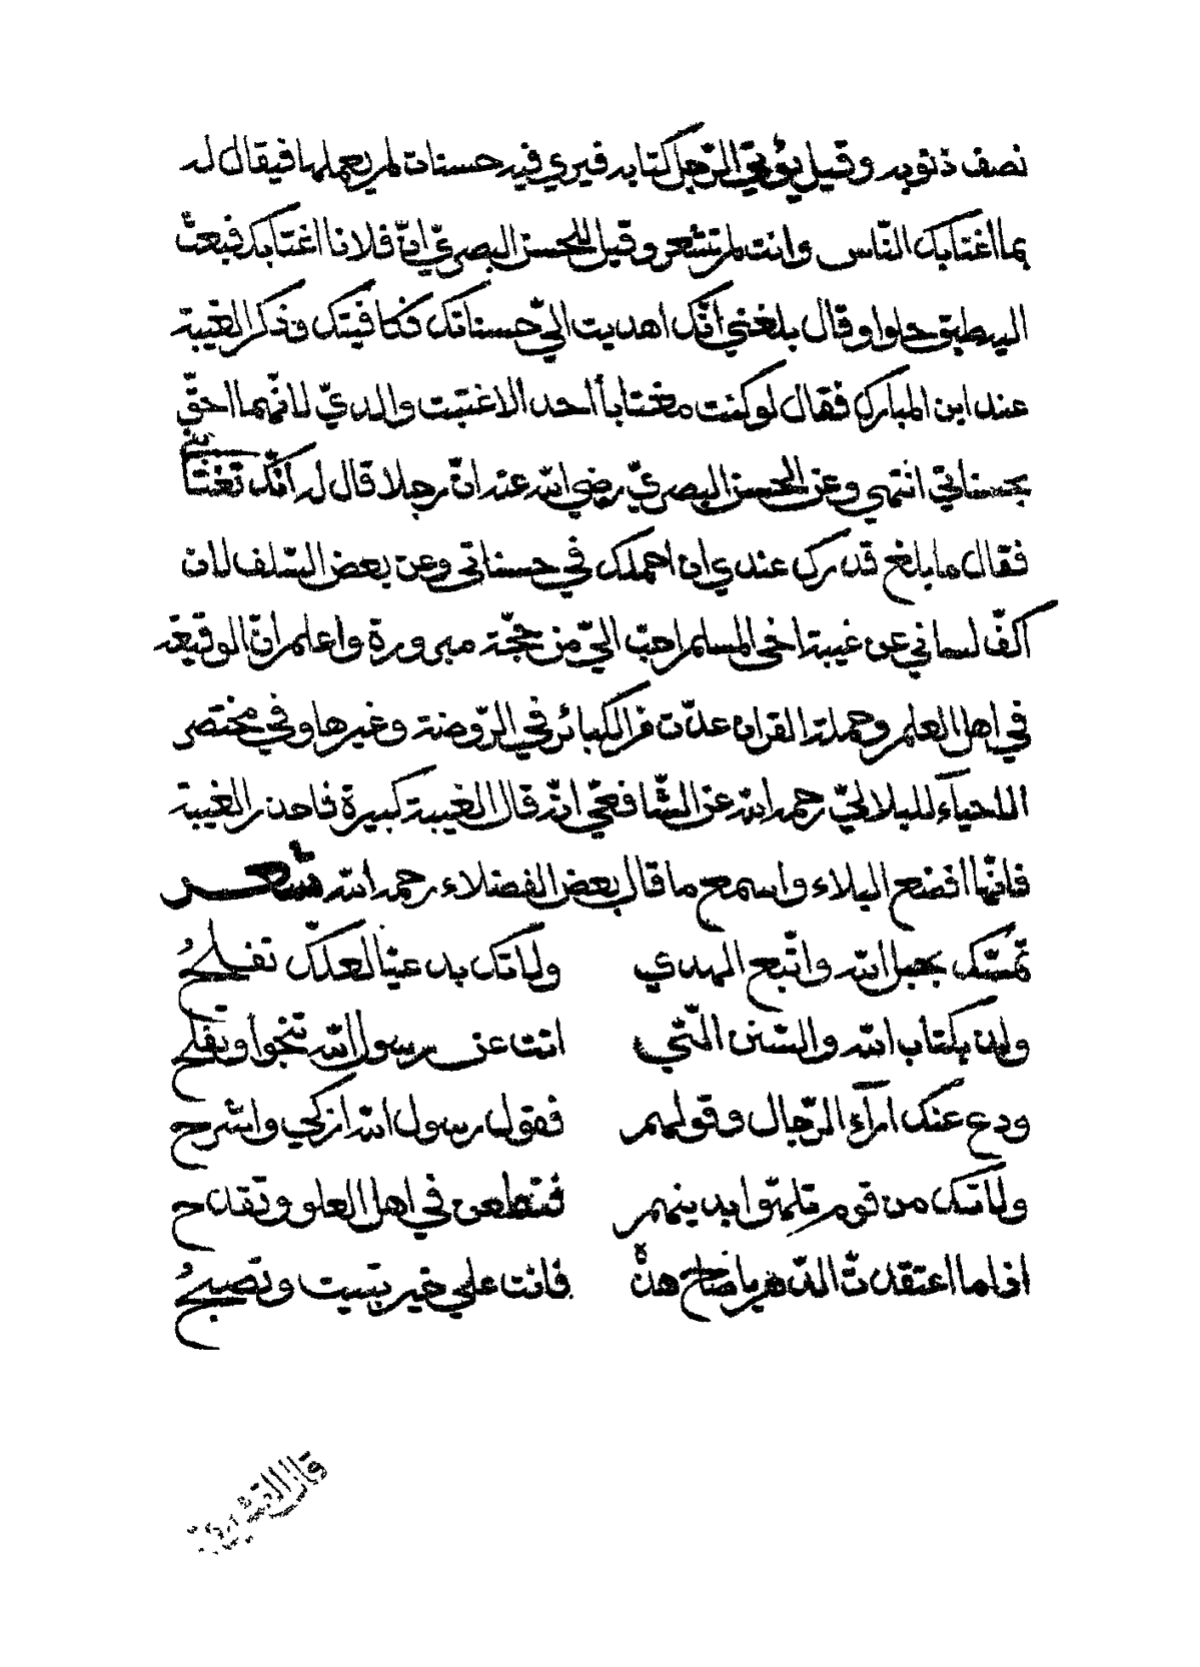 نصف ذنوبه وقيل يؤتي الرّجل كتابه فيري فيه حسنات لم يعملها فيقال له
بما اغتابك النّاس وانت لم تشعر وقيل للحسن البصريّ انّ فلانا اغتابك فبعث
اليه طبق حلوا وقال بلغني انّك اهديت اليّ حسناتك فكافيتك وذكر الغيبة
عند ابن المبارك فقال لو كنت مغتابا احد الاغتبت والديّ لانّهما احقّ
بحسناتي انتهي وعن الحسن البصريّ رضي الله عنه انّ رجلا قال له انّك تغتابني
فقال ما بلغ قدرك عندي ان احملك في حسناتي وعن بعض السّلف لان
اكفّ لساني عن غيبة اخي المسلم احبّ اليّ من حجّة مبرورة واعلم انّ الوقيعة
في اهل العلم وحملة القران عدّت من الكبائر في الرّوضة وغيرها وفي مختصر
الاحياء للبلاليّ رحمه الله عن الشّافعيّ انّه قال الغيبة كبيرة فاحذر الغيبة
فانّها افضع البلاء واسمع ما قال بعض الفضلاء رحمه الله شعر
تمسّك بحبل الله واتّبع الهدي ولاتك بدعيّا لعلّك تفلحُ
ولذ بكتاب الله والسّنن الّتي اتت عن رسول الله تنجوا وتفلح
ودع عنك آرآء الرّجال وقولهم فقول رسول الله ازكي واشرح
ولاتك من قوم تلهّوا بدينهم فتطعن في اهل العلو وتقدح
اذا ما اعتقدتّ الدّهر يا صاح هذه فانت علي خير تبيت وتصبحُ
قال القشيري